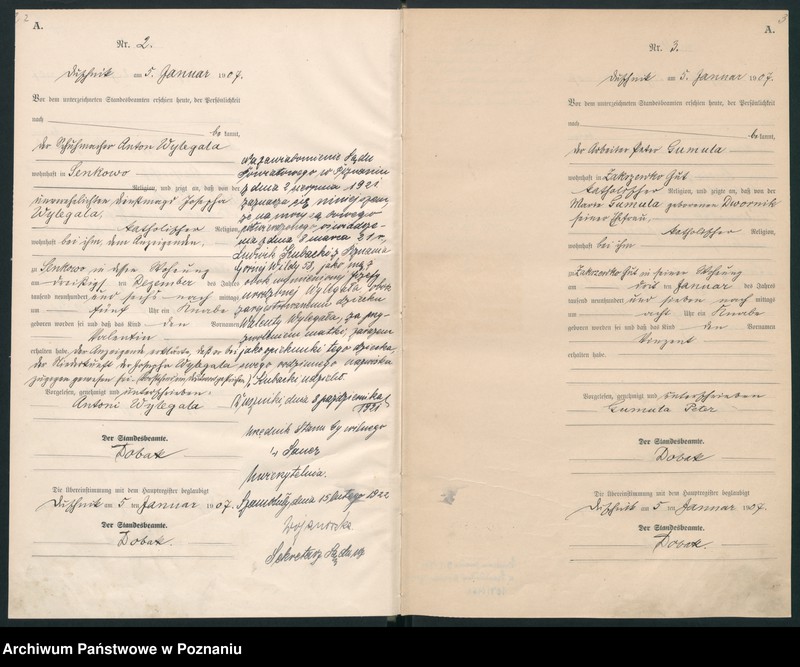 A.
Nr. 2.
Duschnik am 5. Januar 1907.
Vor dem unterzeichneten Standesbeamten erschien heute, der Persönlichkeit
nach
be kannt,
der Schuhmacher Anton Wylegala
wohnhaft in Senkowo
Religion, und zeigt an, daß von der
unverehelichten Dienstmagd Josepha
Wylegala,
katholischer Religion,
wohnhaft bei ihm, dem Anzeigenden,
zu Senkowo in dessen Wohnung
am dreißigsten Dezember des Jahres
tausend neunhundert und sechs nach mittags
um fünf Uhr ein Knabe
geboren worden sei und daß das Kind den Vornamen
Valentin
erhalten habe. Der Anzeigende erklärte, daß er bei
der Niederkunft der Josepha Wylegala
zugegen gewesen sei.
Vorgelesen, genehmigt und unterschrieben.
Antoni Wylegala
Der Standesbeamte.
Dobak
Die Übereinstimmung mit dem Hauptregister beglaubigt
Duschnik am 5 ten Januar 1907.
Der Standesbeamte.
Dobak.
Na zawiadomienie Sądu
Powiatowego w Poznaniu
z dnia 2 sierpnia 1921
zaznacza się niniejszem,
że na mocy
z dnia 8 marca 21 r,
Ludwik Kubacki z Poznania
Górny Wildy 58, jako mąż
obok wymienionej Józefy
urodzonej Wylegała obok
zarejestrowanemu dziecku
Walenty Wylegała, za
zwoleniem matki, zarazem
jako piekunki tego dziecka,
swego rodzinnego nazwiska
Kubacki udzielił.
Duszniki, dnia 8 października
1921
Urzędnik Stanu Cywilnego
Sauer
Uwierzytelnia.
Szamotuły, dnia 15 lutego 1922
Sekretarz Sądowy
A.
Nr. 3.
Duschnik am 5. Januar 1907.
Vor dem unterzeichneten Standesbeamten erschien heute, der Persönlichkeit
nach
be kannt,
der Arbeiter Peter Gumula
wohnhaft in Zakrzewko Gut
katholischer Religion, und zeigte an, daß von der
Marie Gumula geborenen Dwornik
seiner Ehefrau,
katholischer Religion,
wohnhaft bei ihm
zu Zakrzewko Gut in seiner Wohnung
am dritten Januar des Jahres
tausend neunhundert und sieben nach mittags
um acht Uhr ein Knabe
geboren worden sei und daß das Kind den Vornamen
Vinzent
erhalten habe.
Vorgelesen, genehmigt und unterschrieben
Gumula Peter
Der Standesbeamte.
Dobak
Die Übereinstimmung mit dem Hauptregister beglaubigt
Duschnik am 5 ten Januar 1907.
Der Standesbeamte.
Dobak.
Archiwum Państwowe w Poznaniu